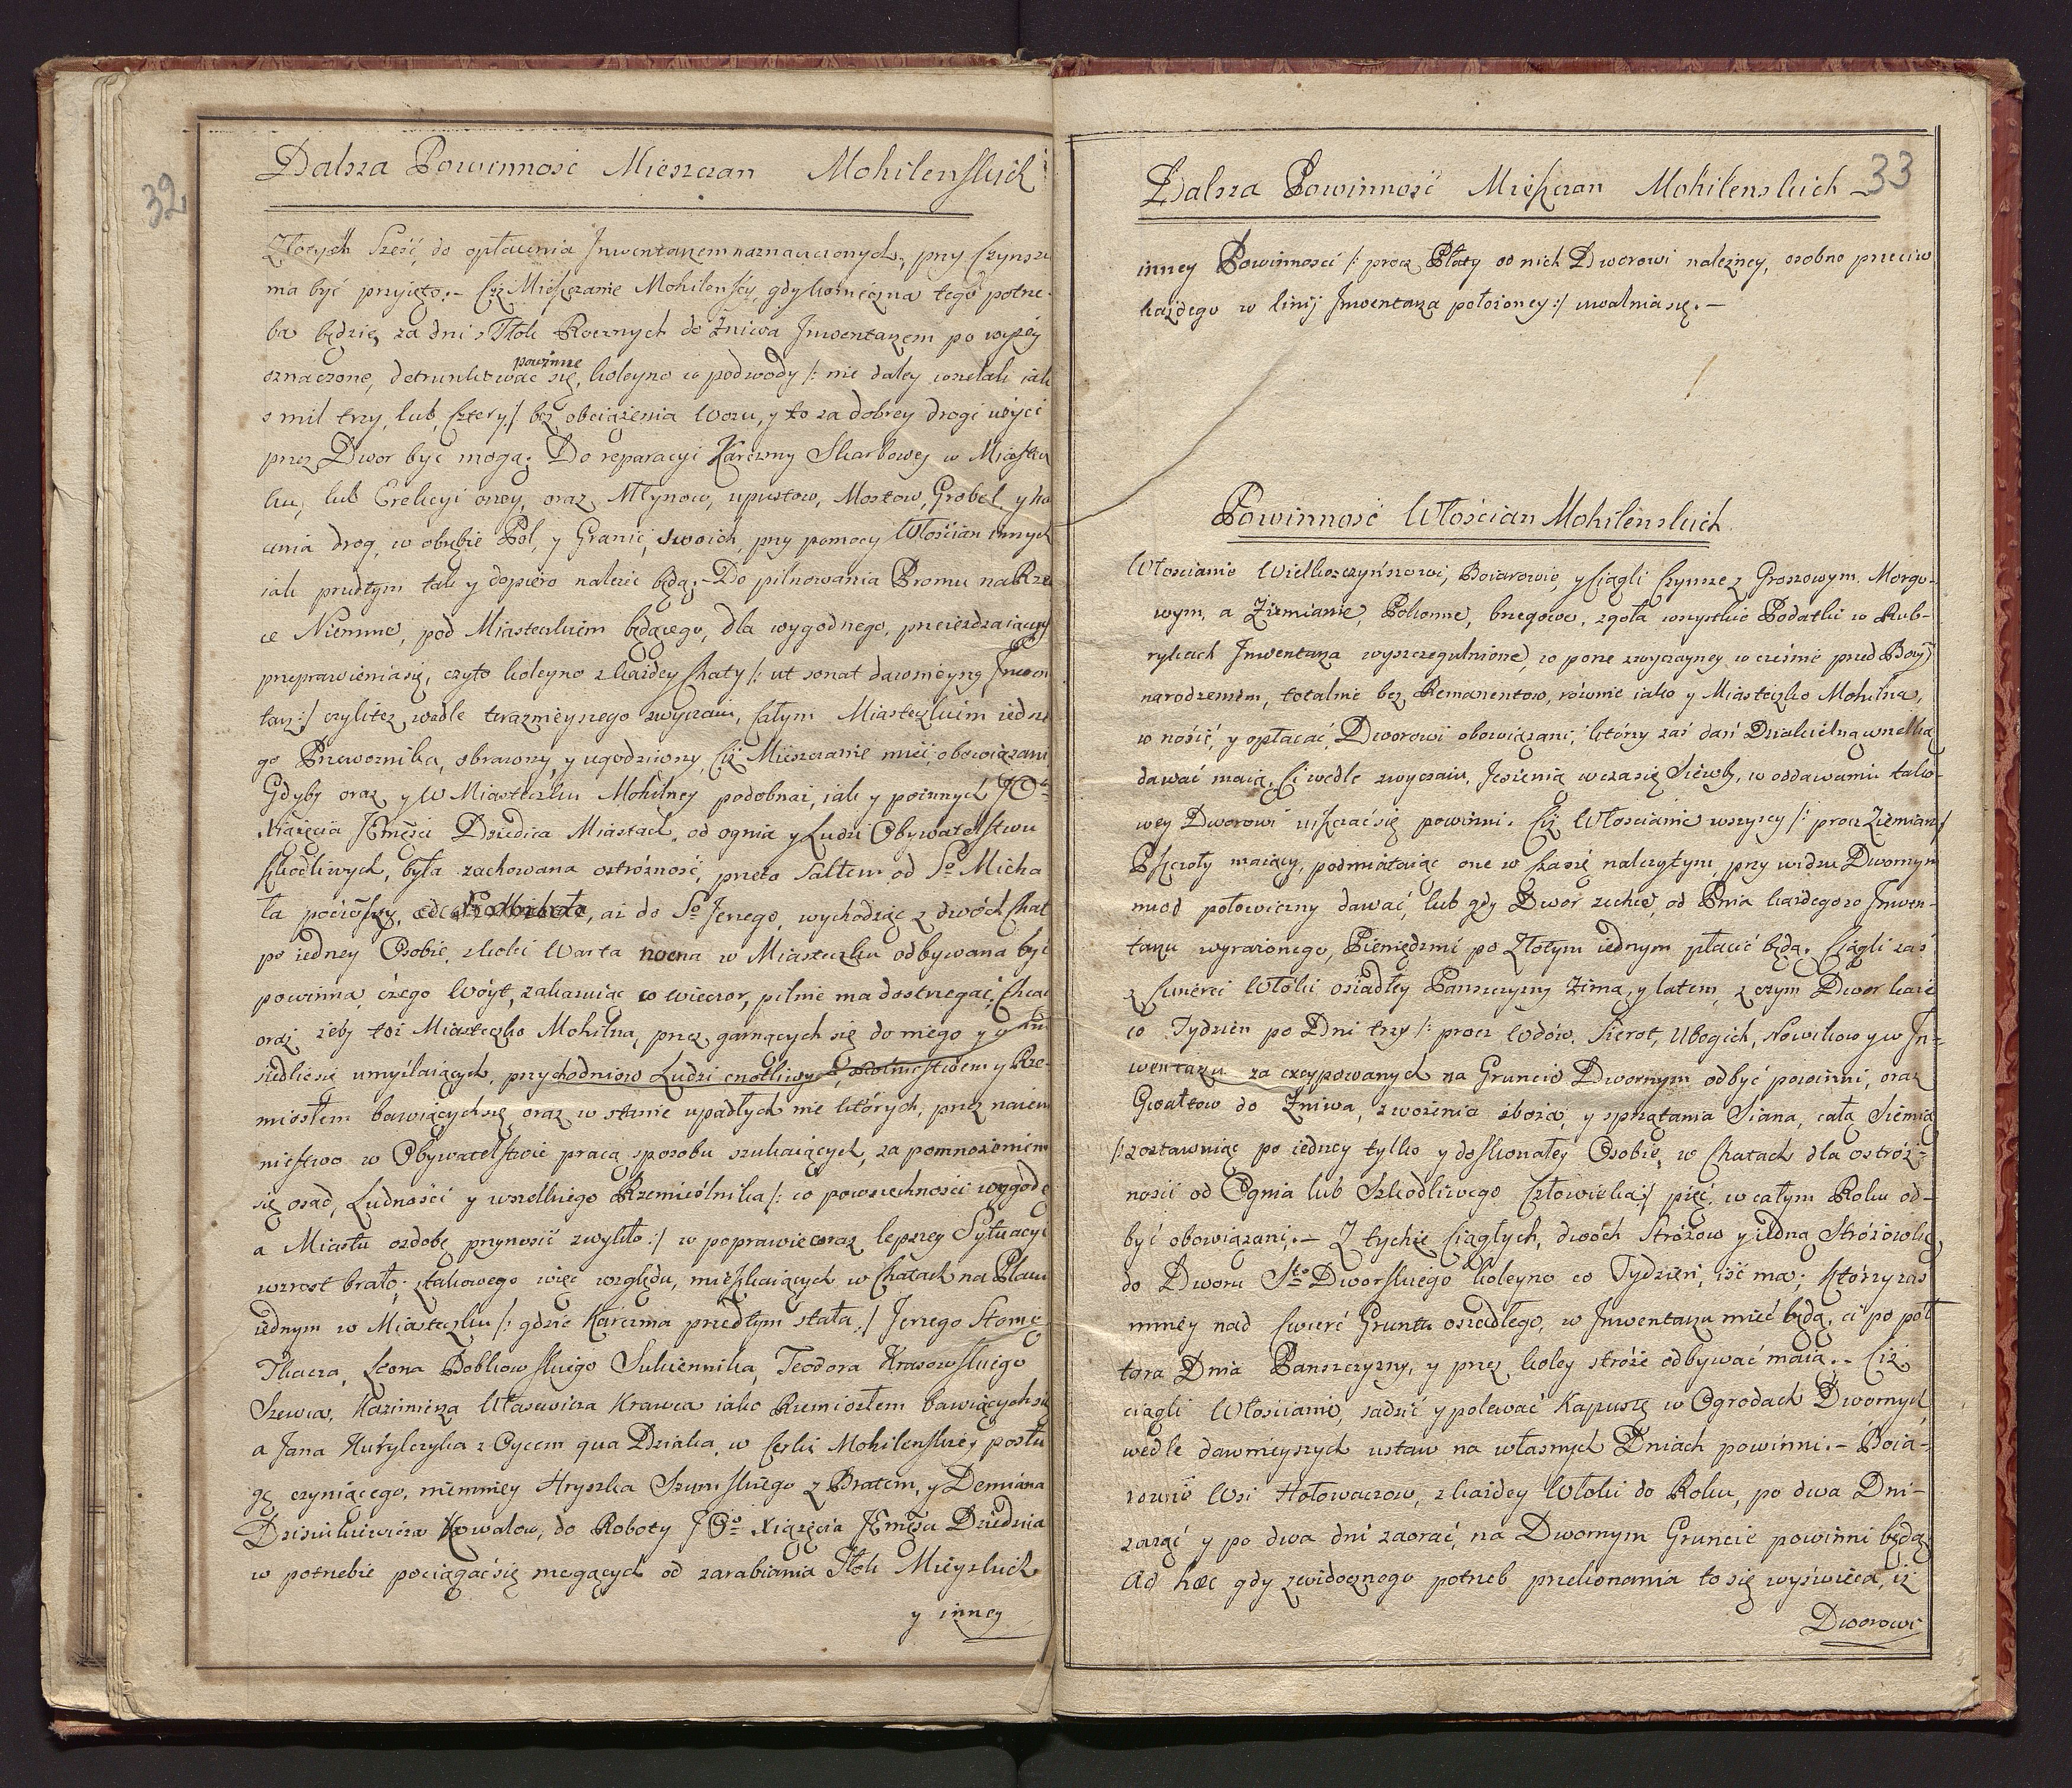 32
Dalsza Powinność Mieszczan Mohilenskich
Złotych Sześć, do opłacenia Inwentarzem naznaczonych, przy Czynszu
ma być przyięto.- Ciż Mieszczanie Mohilenscy, gdy konieczna tego potrze-
ba będzie, za dni Tłok Rocznych do Żniwa Inwentarzem powyżey
oznaczone, detrunkować się powinne, koleyno w podwody /: nie daley wszelak iak
o mil trzy, lub Cztery :/ bez obciążenia Wozu, y to za dobrey drogi użyci
przez Dwor być mogą; Do reparacyi Karczmy Skarbowey w Miastecz
ku, lub Erekcyi oney, oraz Młynow, upustow, Mostow, Grobel, y
cenia drog, w obrębie Pol, y Granic, swoich, przy pomocy Włościan innych
iak przedtym tak y dopiero należeć będą.- Do pilnowania Promu na Rze
ce Niemnie, pod Miasteczkiem będącego, dla wygodnego, przeieżdzaiących
przeprawienia się, czyto koleyno z każdey Chaty /: ut sonat dawnieyszy Inwen
tarz :/ czyliteż wedle teraznieyszego zwyczaiu, całym Miasteczkiem iedne
go Przewoznika, obranony y ugodzniony, Ciż Mieszczanie mieć, obowiązani
Gdyby oraz y W Miasteczku Mohilney podobnaż, iak y po innych JOo
Xiążęcia JEmści Dziedzica Miastach, od ognia y Ludzi Obywatelstwu
szkodliwych, była zachowana ostróżność, przeto Saltem od So Micha
ła począwszy, aż do So Jerzego, wychodząc z dwóch Chat
po iedney Osobie, z kolei Warta nocna w Miasteczku odbywana być
powinna, czego Wóyt, zakazuiąc co wieczor, pilnie ma dostrzegać, Chcąc
oraz żeby toż Miasteczko Mohilna, przez garnących się do niego y
siedlić się umyślaiących, przychodniow Ludzi cnotliwych, y Rze-
miosłem bawiących się oraz w stanie upadłych nie których, przez naiem
nictwo w Obywatelstwie pracą sposobu szukaiących, za pomnożeniem
się osad, Ludności y wszelkiego Rzemieślnika /: co powszechności wygodę
a Miastu ozdobę przynosić zwykło :/ w poprawie coraz lepszey Sytuacyi
wzrost brało; z takowego więc względu, mieszkaiących w Chatach na Placu
iednym w Miasteczku /: gdzie Karczma przedtym stała :/ Jerzego Stomę
Tkacza, Leona Bobkowskiego Sukiennika, Teodora Krasowskiego
Szewca, Kazimierza Własewicza Krawca iako Rzemiosłem bawiących się
a Jana Kuryłczyka z Oycem qua Dziaka, w Cerkwi Mohilenskiey posłu
gę czyniącego, niemniey Hryszka Szumskiego z Bratem, y Demiana
Dzisiukiewicza Kowalow, do Roboty JOo Xiążęcia JEmści Dziedzica
w potrzebie pociągać się mogących od zarabiania Tłok Mieyskich
y inney
33
Dalsza Powinność Mieszczan Mohilenskich
inney Powinności /: procz Płaty od nich Dworowi należney, osobno przeciw
każdego w linij Inwentarza położoney :/ uwalnia się.-
Powinność Włościan Mohilenskich
Włoscianie Wielkoczynszowi, Boiarowie, y Ciągli Czynsze z Groszowym Morgo-
wym, a Ziemianie, Pokonne, brzegowe, zgoła wszystkie Podatki w Rub-
rykach Inwentarza wyszczegulnione, w porze zwyczayney w cześnie przed Bożym
narodzeniem, totalnie bez Remanentow, równie iako y Miasteczko Mohilna,
w nosić, y opłacać Dworowi obowiązani, który zaś dań Dziakielną wszelką
dawać maią, Ci wedle zwyczaiu, Jesienią w czasie Siewby, w oddawaniu tako-
wey Dworowi uiszczać się powinni. Ciż Włościanie wszyscy /: procz Ziemian :/
Pszczoły maiący, podmiataiąc one w Czasie należytym, przy widzu Dwornym
miod połowiczny dawać, lub gdy Dwor zechce, od Pnia każdego w Inwen-
tarzu wyrażonego, Pieniędzmi po Złotym iednym płacić będą. Ciągli zaś
z Cwierci Włóki osiadłey Panszczyzny Zimą, y latem, z czym Dwor każe
co Tydzien po Dni trzy /: procz Wdów, Sierot, Ubogich, Nowikow y w In-
wentarzu za excypowanych na Gruncie Dwornym odbyć powinni, oraz
Gwałtow do Żniwa, zwożenia zboża, y sprzątania Siana, całą Siemią
/: zostawuiąc po iedney tylko y doskonałey Osobie, w Chatach dla ostróż-
ności od Ognia lub Szkodliwego Człowieka :/ pięć w całym Roku od-
być obowiązani.- Z tychże Ciągłych, dwóch Stróżow y iedna Stróżowka,
do Dworu Sto Dworskiego koleyno co Tydzień, iść ma; Którzy zaś
mniey nad Cwierć Gruntu osiadłego, w Inwentarzu mieć będą, ci po poł
tora Dnia Panszczyzny, y przez koley stróże odbywać maią.- Ciż
ciągli Włościanie, sadzić y polewać Kapustę w Ogrodach Dwornych
wedle dawnieyszych ustaw na własnych Dniach powinni.- Boia-
rowie Wsi Hołowaczow, z każdey Włoki do Roku, po dwa Dni-
zażąć y po dwa dni zaorać, na Dwornym Gruncie powinni będą
Ad hæc gdy z widocznego potrzeb przekonania to się wyświeca, iż
Dworowi